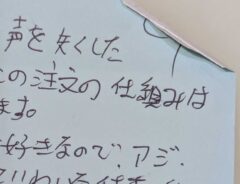 声を失くした
この注文の仕組みは
ます。
好きなので、アジ、